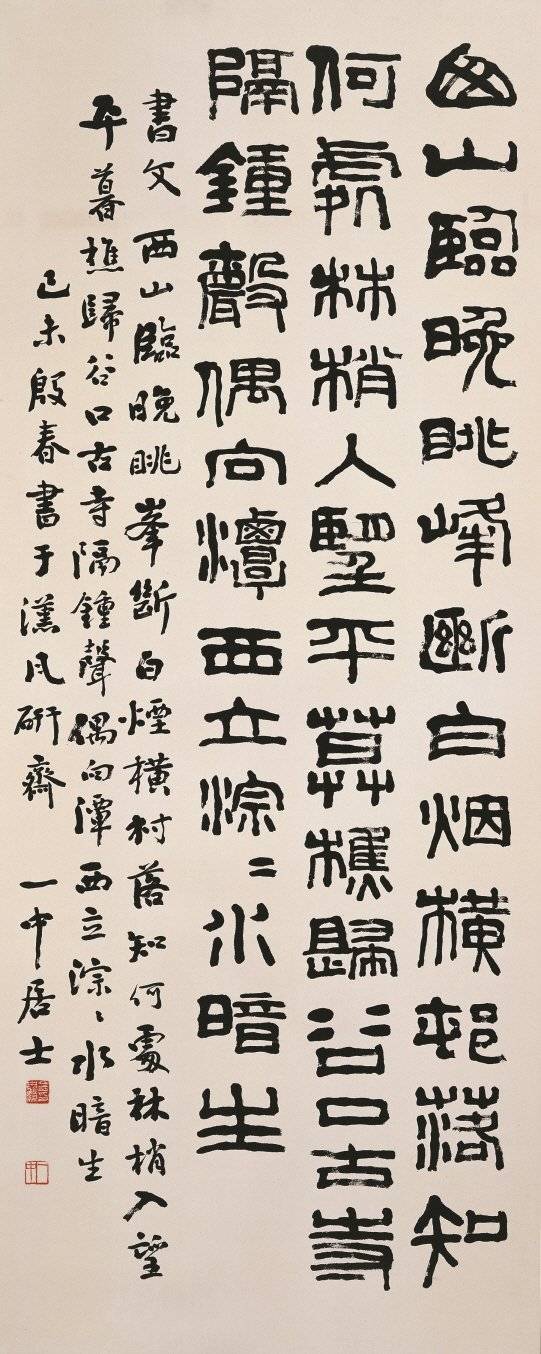 西山臨晚眺峰斷白烟橫邨落知
何處林梢入朢平暮樵歸谷口古寺
隔鍾聲偶向潭西立淙〻水暗生
書文 西山臨晚眺峯斷白煙橫村落知何處林梢入望
平暮樵歸谷口古寺隔鍾聲偶向潭西立淙〻水暗生
己未殷春書于漢风研齋 一中居士